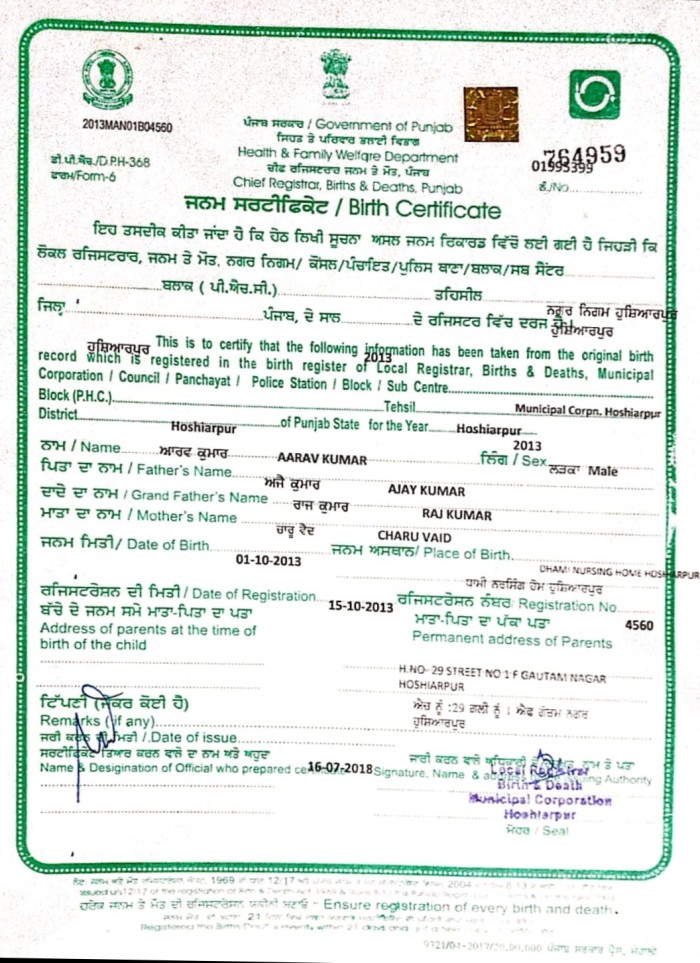 2013MAN01B04560
ਪੰਜਾਬ ਸਰਕਾਰ / Government of Punjab
ਸਿਹਤ ਤੇ ਪਰਿਵਾਰ ਭਲਾਈ ਵਿਭਾਗ
Health & Family Welfare Department
ਚੀਫ ਰਜਿਸਟਰਾਰ ਜਨਮ ਤੇ ਮੌਤ, ਪੰਜਾਬ
Chief Registrar, Births & Deaths, Punjab
764959
01995399
ਨੰ./No.
ਡੀ.ਪੀ.ਐਚ./D.P.H-368
ਫਾਰਮ/Form-6
ਜਨਮ ਸਰਟੀਫਿਕੇਟ / Birth Certificate
ਇਹ ਤਸਦੀਕ ਕੀਤਾ ਜਾਂਦਾ ਹੈ ਕਿ ਹੇਠ ਲਿਖੀ ਸੂਚਨਾ ਅਸਲ ਜਨਮ ਰਿਕਾਰਡ ਵਿੱਚੋਂ ਲਈ ਗਈ ਹੈ ਜਿਹੜੀ ਕਿ
ਲੋਕਲ ਰਜਿਸਟਰਾਰ, ਜਨਮ ਤੇ ਮੌਤ, ਨਗਰ ਨਿਗਮ/ ਕੌਂਸਲ/ਪੰਚਾਇਤ/ਪੁਲਿਸ ਥਾਣਾ/ਬਲਾਕ/ਸਬ ਸੈਂਟਰ
ਬਲਾਕ ( ਪੀ.ਐਚ.ਸੀ.) ਤਹਿਸੀਲ ਨਗਰ ਨਿਗਮ ਹੁਸ਼ਿਆਰਪੁਰ
ਜਿਲ੍ਹਾ ਪੰਜਾਬ, ਦੇ ਸਾਲ ਦੇ ਰਜਿਸਟਰ ਵਿੱਚ ਦਰਜ ਹੈ। ਹੁਸ਼ਿਆਰਪੁਰ
ਹੁਸ਼ਿਆਰਪੁਰ This is to certify that the following information has been taken from the original birth
2013
record which is registered in the birth register of Local Registrar, Births & Deaths, Municipal
Corporation / Council / Panchayat / Police Station / Block / Sub Centre
Block (P.H.C.) Tehsil Municipal Corpn. Hoshiarpur
District Hoshiarpur of Punjab State for the Year Hoshiarpur
2013
ਨਾਮ / Name ਆਰਵ ਕੁਮਾਰ AARAV KUMAR ਲਿੰਗ / Sex ਲੜਕਾ Male
ਪਿਤਾ ਦਾ ਨਾਮ / Father's Name ਅਜੈ ਕੁਮਾਰ AJAY KUMAR
ਦਾਦੇ ਦਾ ਨਾਮ / Grand Father's Name ਰਾਜ ਕੁਮਾਰ RAJ KUMAR
ਮਾਤਾ ਦਾ ਨਾਮ / Mother's Name ਚਾਰੂ ਵੈਦ CHARU VAID
ਜਨਮ ਮਿਤੀ/ Date of Birth 01-10-2013 ਜਨਮ ਅਸਥਾਨ/ Place of Birth DHAMI NURSING HOME HOSHIARPUR
ਧਾਮੀ ਨਰਸਿੰਗ ਹੋਮ ਹੁਸ਼ਿਆਰਪੁਰ
ਰਜਿਸਟਰੇਸ਼ਨ ਦੀ ਮਿਤੀ / Date of Registration 15-10-2013 ਰਜਿਸਟਰੇਸ਼ਨ ਨੰਬਰ/ Registration No. 4560
ਬੱਚੇ ਦੇ ਜਨਮ ਸਮੇ ਮਾਤਾ-ਪਿਤਾ ਦਾ ਪਤਾ
Address of parents at the time of
birth of the child
ਮਾਤਾ-ਪਿਤਾ ਦਾ ਪੱਕਾ ਪਤਾ
Permanent address of Parents
H.NO- 29 STREET NO 1 F GAUTAM NAGAR
HOSHIARPUR
ਐਚ ਨੂੰ :29 ਗਲੀ ਨੂੰ 1 ਐਫ ਗੌਤਮ ਨਗਰ
ਹੁਸ਼ਿਆਰਪੁਰ
ਟਿੱਪਣੀ (ਜੇਕਰ ਕੋਈ ਹੈ)
Remarks (if any)
ਜਾਰੀ ਕਰਨ ਦੀ ਮਿਤੀ /.Date of issue
ਸਰਟੀਫਿਕੇਟ ਤਿਆਰ ਕਰਨ ਵਾਲੇ ਦਾ ਨਾਮ ਅਤੇ ਅਹੁਦਾ
Name & Desigination of Official who prepared 16-07-2018
ਜਾਰੀ ਕਰਨ ਵਾਲੇ ਅਧਿਕਾਰੀ ਨਾਮ ਤੇ ਪਤਾ
Signature, Name & Authority
Local Registrar
Birth & Death
Municipal Corporation
Hoshiarpur
ਮੋਹਰ / Seal
ਹਰੇਕ ਜਨਮ ਤੇ ਮੌਤ ਦੀ ਰਜਿਸਟ੍ਰੇਸ਼ਨ ਯਕੀਨੀ ਬਣਾਓ - Ensure registration of every birth and death.